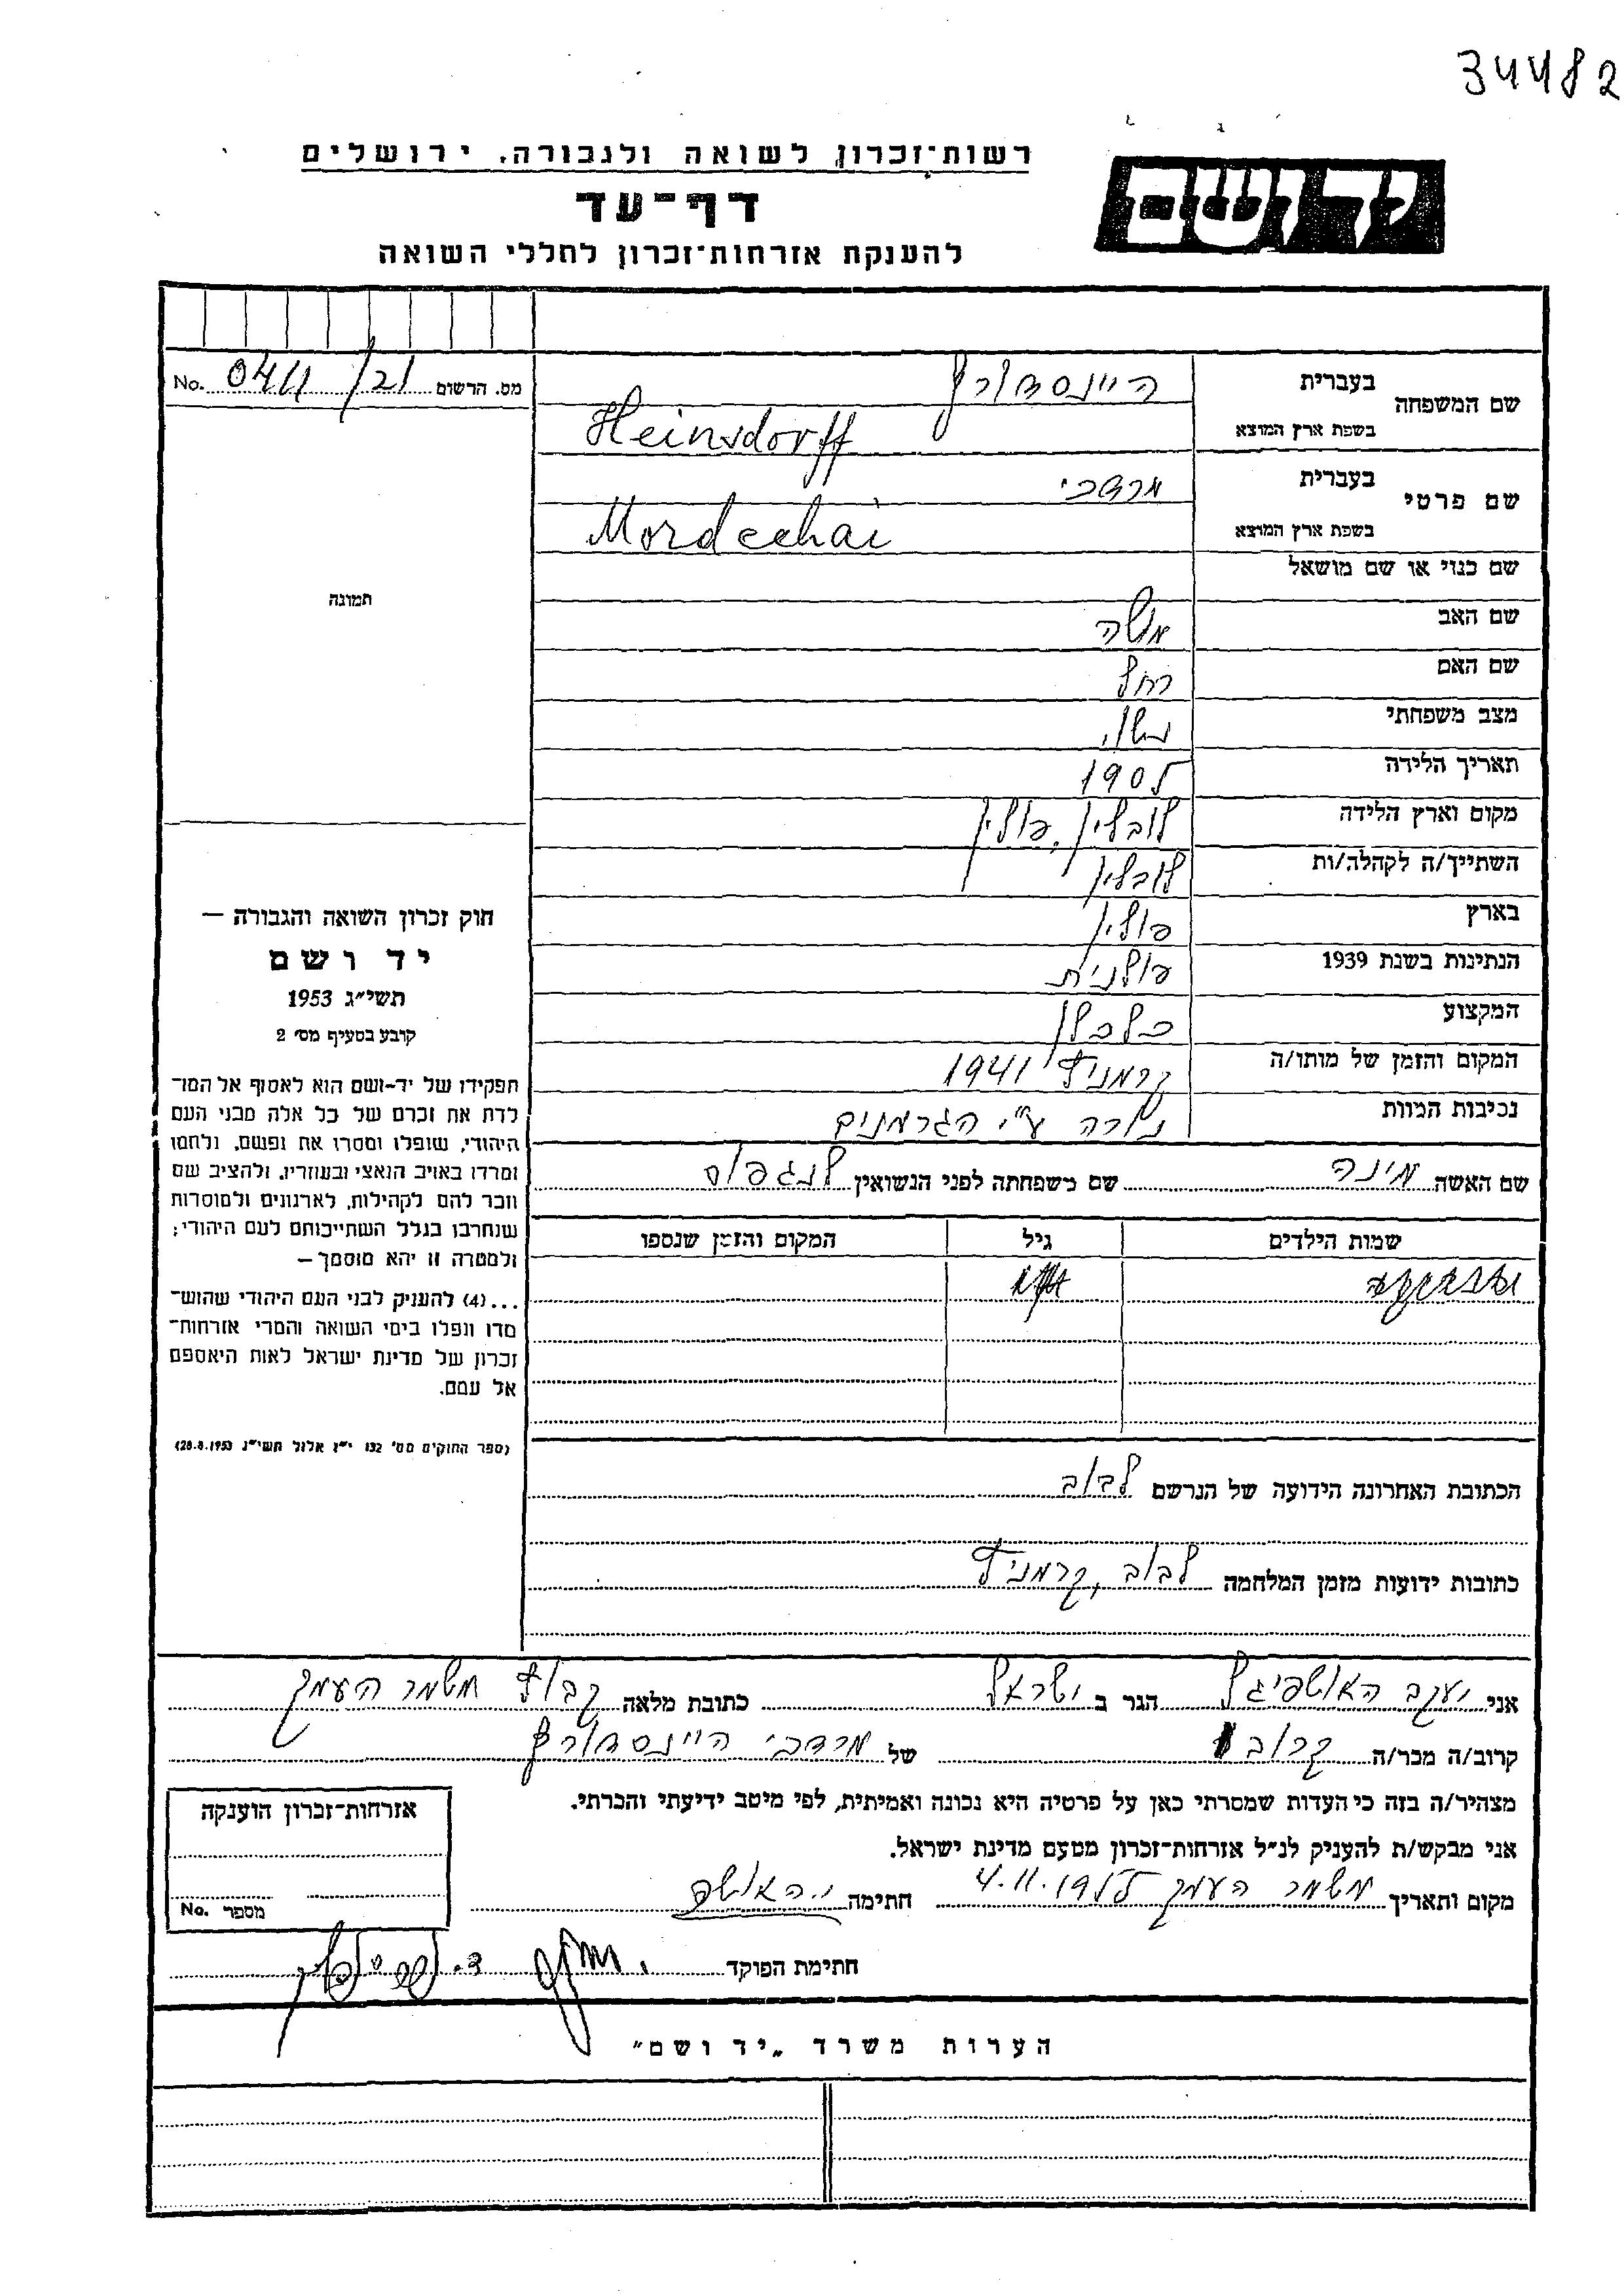 34482
רשות־זכרון לשואה ולגבורה, ירושלים
יד ושם
דף־עד
להענקת אזרחות־זכרון לחללי השואה
שם המשפחה בעברית היינסדורף
בשפת ארץ המוצא Heinsdorff
שם פרטי בעברית מרדכי
בשפת ארץ המוצא Mordechai
שם כנוי או שם מושאל
שם האב משה
שם האם רחל
מצב משפחתי נשוי
תאריך הלידה 1905
מקום וארץ הלידה לובלין, פולין
השתייך/ה לקהלה/ות לובלין
בארץ פולין
הנתינות בשנת 1939 פולנית
המקצוע כלכלן
המקום והזמן של מותו/ה קרמניץ 1941
נסיבות המוות נורה ע"י הגרמנים
שם האשה מינה שם משפחתה לפני הנשואין לנגפוס
שמות הילדים גיל המקום והזמן שנספו
הכתובת האחרונה הידועה של הנרשם לבוב
כתובות ידועות מזמן המלחמה לבוב, קרמניץ
מס. הרשום 0411/21 No.
תמונה
חוק זכרון השואה והגבורה —
יד ושם
תשי"ג 1953
קובע בסעיף מס' 2
תפקידו של יד-ושם הוא לאסוף אל המו־
לדת את זכרם של כל אלה מבני העם
היהודי, שנפלו ומסרו את נפשם, נלחמו
ומרדו באויב הנאצי ובעוזריו, ולהציב שם
וזכר להם לקהילות, לארגונים ולמוסדות
שנחרבו בגלל השתייכותם לעם היהודי;
ולמטרה זו יהא מוסמך —
...(4) להעניק לבני העם היהודי שהוש־
מדו ונפלו בימי השואה והמרי אזרחות־
זכרון של מדינת ישראל לאות היאספם
אל עמם.
(ספר החוקים מס' 132 י"ז אלול תשי"ג 28.8.1953)
אני יעקב האושפיגל הגר ב ישראל כתובת מלאה קבוץ משמר העמק
קרוב/ה מכר/ה קרוב של מרדכי היינסדורף
מצהיר/ה בזה כי העדות שמסרתי כאן על פרטיה היא נכונה ואמיתית, לפי מיטב ידיעתי והכרתי.
אני מבקש/ת להעניק לנ"ל אזרחות־זכרון מטעם מדינת ישראל.
מקום ותאריך משמר העמק 4.11.1955 חתימה
אזרחות־זכרון הוענקה
מספר No.
חתימת הפוקד
הערות משרד „יד ושם"